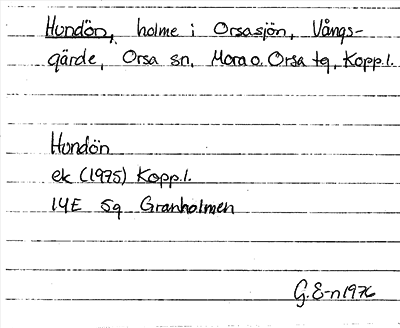 Hundön, holme i Orsasjön, Vångs-
gärde, Orsa sn, Mora o. Orsa tg, Kopp.l.
Hundön
ek (1975) Kopp.l.
14E 5g Granholmen
G.E-n 1976